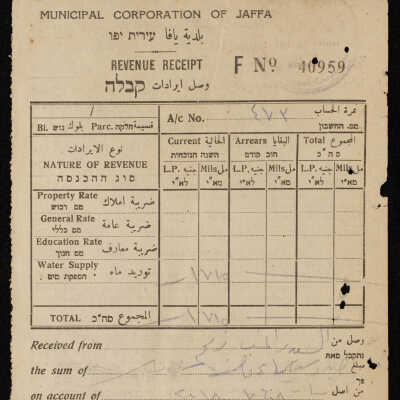 MUNICIPAL CORPORATION OF JAFFA
بلدية يافا עירית יפו
REVENUE RECEIPT F Nº 40959
وصل ايرادات קבלה
/ A/c No. ٤٧٢ نمرة الحساب
מס. החשבון
Bl. גוש بلوك Parc. חלקה قسيمة
Current الحالية Arrears البقايا Total المجموع
השנה הנוכחית חוב קודם סה"כ
نوع الايرادات
NATURE OF REVENUE
סוג ההכנסה
L.P. جنيه Mils مل L.P. جنيه Mils مل L.P. جنيه Mils مل
לא"י מא"י לא"י מא"י לא"י מא"י
Property Rate ضريبة املاك
מס רכוש
General Rate ضريبة عامة
מס כללי
Education Rate ضريبة معارف
מס חנוך
Water Supply توريد ماء
הספקת מים
TOTAL المجموع סה"כ
Received from وصل من
נתקבל מאת
the sum of مبلغ
סך
on account of من اصل